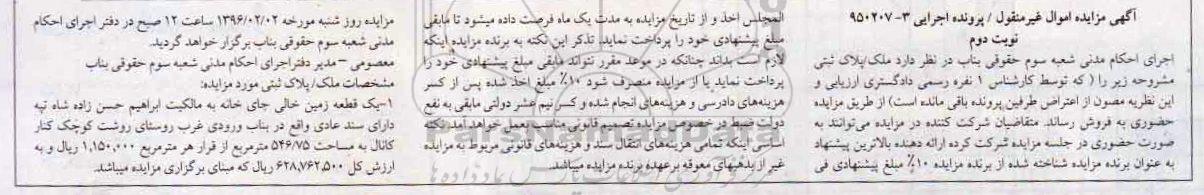 آگهی مزایده اموال غیرمنقول / پرونده اجرایی ۳- ۹۵۰۲۰۷
نوبت دوم
اجرای احکام مدنی شعبه سوم حقوقی بناب در نظر دارد ملک/پلاک ثبتی
مشروحه زیر را ( که توسط کارشناس ۱ نفره رسمی دادگستری ارزیابی و
این نظریه مصون از اعتراض طرفین پرونده باقی مانده است) از طریق مزایده
حضوری به فروش رساند. متقاضیان شرکت کننده در مزایده می‌توانند به
صورت حضوری در جلسه مزایده شرکت کرده ارائه دهنده بالاترین پیشنهاد
به عنوان برنده مزایده شناخته شده از برنده مزایده ۱۰٪ مبلغ پیشنهادی فی
المجلس اخذ و از تاریخ مزایده به مدت یک ماه فرصت داده میشود تا مابقی
مبلغ پیشنهادی خود را پرداخت نماید. تذکر این نکته به برنده مزایده اینکه
لازم است بداند چنانکه در موعد مقرر نتواند مابقی مبلغ پیشنهادی خود را
پرداخت نماید یا از مزایده منصرف شود ۱۰٪ مبلغ اخذ شده پس از کسر
هزینه‌های دادرسی و هزینه‌های انجام شده و کسر نیم عشر دولتی مابقی به نفع
دولت ضبط در خصوص مزایده تصمیم قانونی مناسب بعمل خواهد آمد. نکته
اساسی اینکه تمامی هزینه‌های انتقال سند و هزینه‌های قانونی مربوط به مزایده
غیر از بدهیهای معوقه برعهده برنده مزایده میباشد.
مزایده روز شنبه مورخه ۱۳۹۶/۰۲/۰۲ ساعت ۱۲ صبح در دفتر اجرای احکام
مدنی شعبه سوم حقوقی بناب برگزار خواهد گردید.
معصومی – مدیر دفتراجرای احکام مدنی شعبه سوم حقوقی بناب
مشخصات ملک/ پلاک ثبتی مورد مزایده:
۱-یک قطعه زمین خالی جای خانه به مالکیت ابراهیم حسن زاده شاه تپه
دارای سند عادی واقع در بناب ورودی غرب روستای روشت کوچک کنار
کانال به مساحت ۵۴۶/۷۵ مترمربع از قرار هر مترمربع ۱,۱۵۰,۰۰۰ ریال و به
ارزش کل ۶۲۸,۷۶۲,۵۰۰ ریال که مبنای برگزاری مزایده میباشد.
ParsNamadData